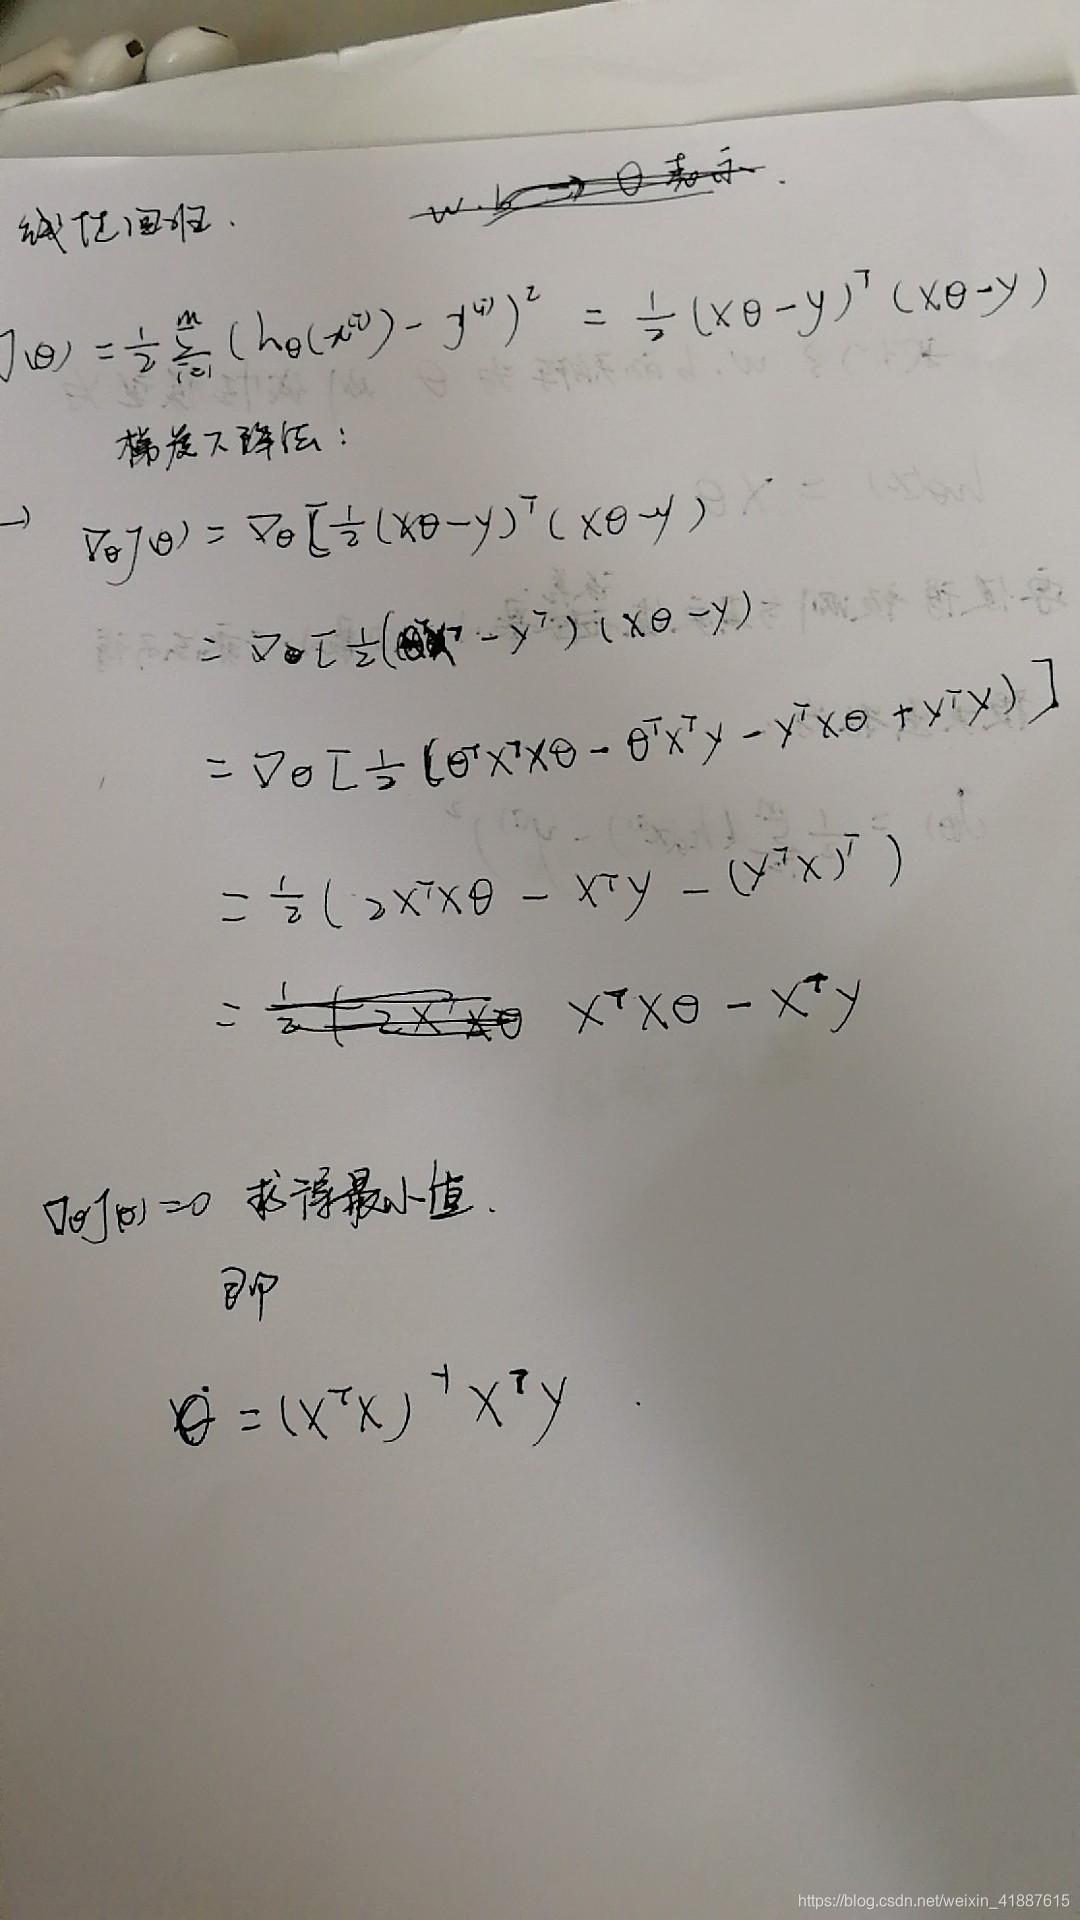 线性回归.
w.b → θ 表示.
J(θ) = 1/2 Σ_{i=1}^{m} (h_θ(x^{(i)}) - y^{(i)})^2 = 1/2 (Xθ-y)^T (Xθ-y)
梯度下降法:
→ ∇_θ J(θ) = ∇_θ [1/2 (Xθ-y)^T (Xθ-y)
= ∇_θ [1/2 (θ^T X^T - y^T) (Xθ-y)
= ∇_θ [1/2 (θ^T X^T Xθ - θ^T X^T y - y^T Xθ + y^T y)]
= 1/2 ( 2X^T Xθ - X^T y - (y^T X)^T )
= 1/2 ( 2X^T Xθ X^T Xθ - X^T y
∇_θ J(θ) = 0 求得最小值.
即
θ = (X^T X)^{-1} X^T y
https://blog.csdn.net/weixin_41887615